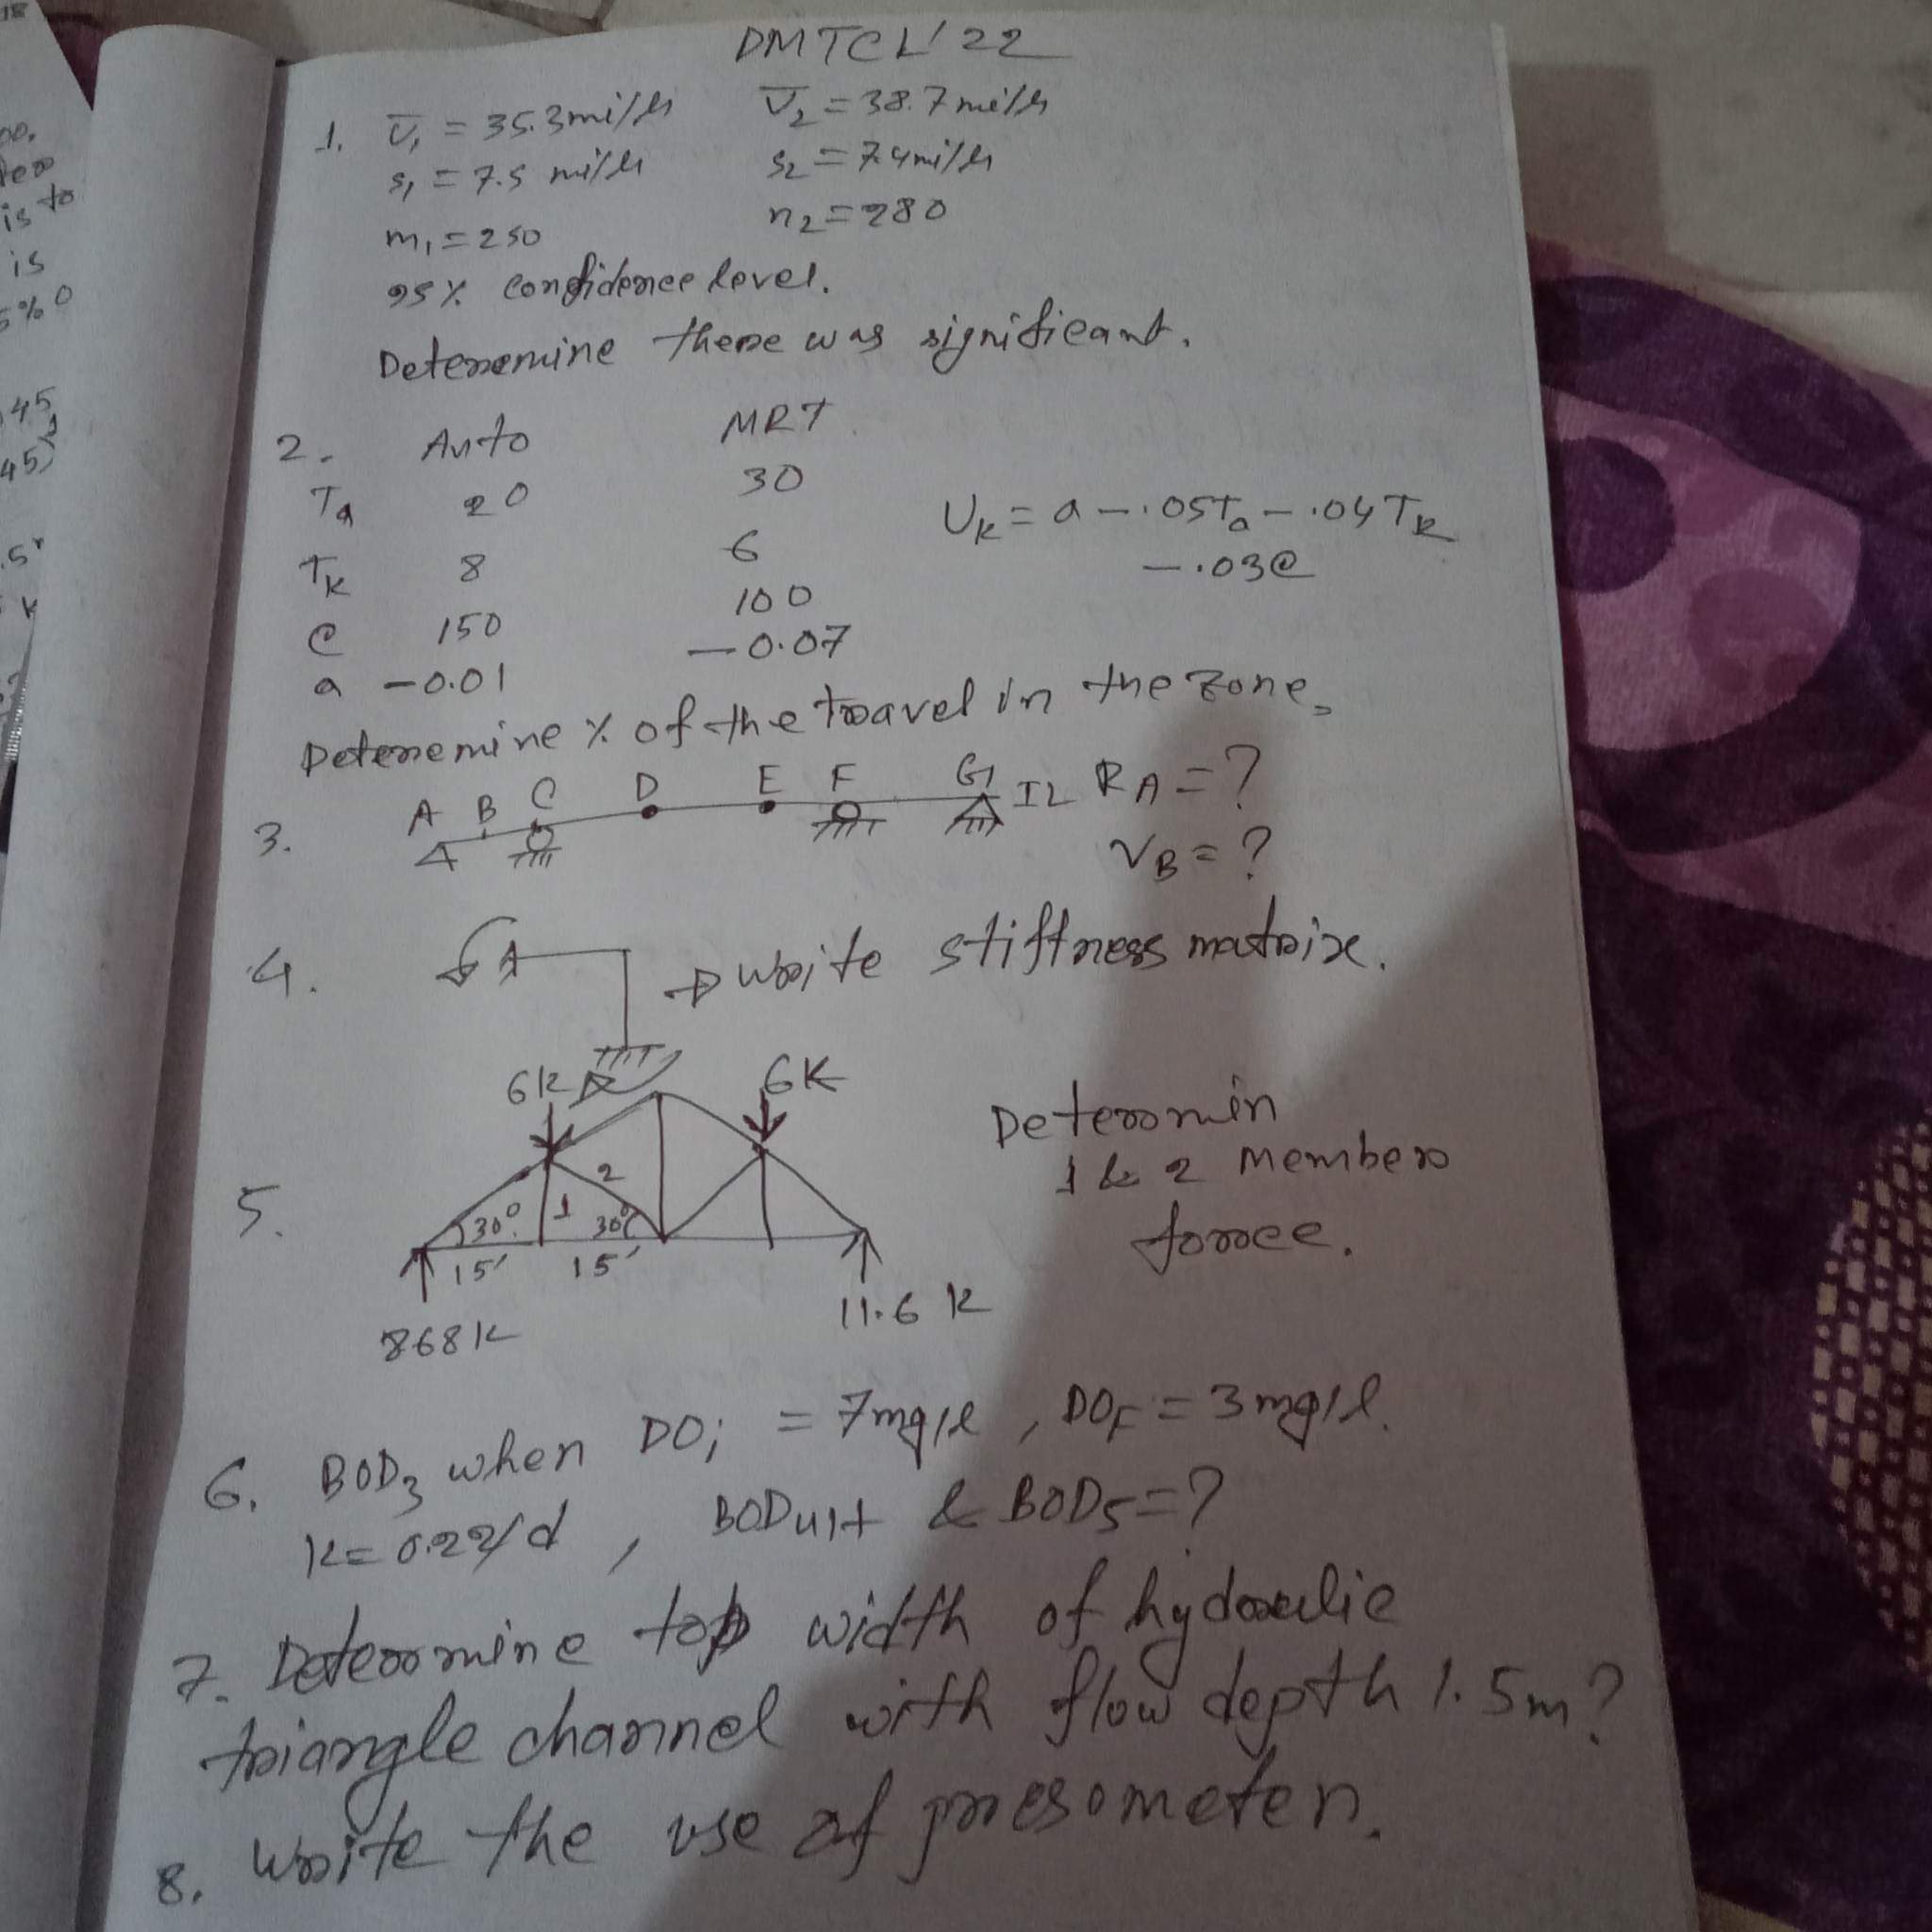 DMTCL'22
1. V̄₁ = 35.3mi/h V̄₂ = 38.7mi/h
s₁ = 7.5 mi/h s₂ = 7.4mi/h
m₁ = 250 n₂ = 280
95% confidence level.
Determine there was significant.
2. Auto MRT
Ta 20 30
Uk = a - .05Ta - .04Tk
Tk 8 6
- .03C
C 150 100
a -0.01 -0.07
Determine % of the travel in the zone,
3. A B C D E F G IL RA = ?
VB = ?
4. A → write stiffness matrix.
6k 6K
5. 30° 1 2 30° Determin
1 & 2 member
force.
15' 15'
868k 11.6 k
6. BOD₃ when DOi = 7mg/l, DOF = 3mg/l.
K = 0.22/d, BODult & BOD5 = ?
7. Determine top width of hydraulic
triangle channel with flow depth 1.5m?
8. write the use of presometer.
18
is to
is
5%0
45
45
.5"
K